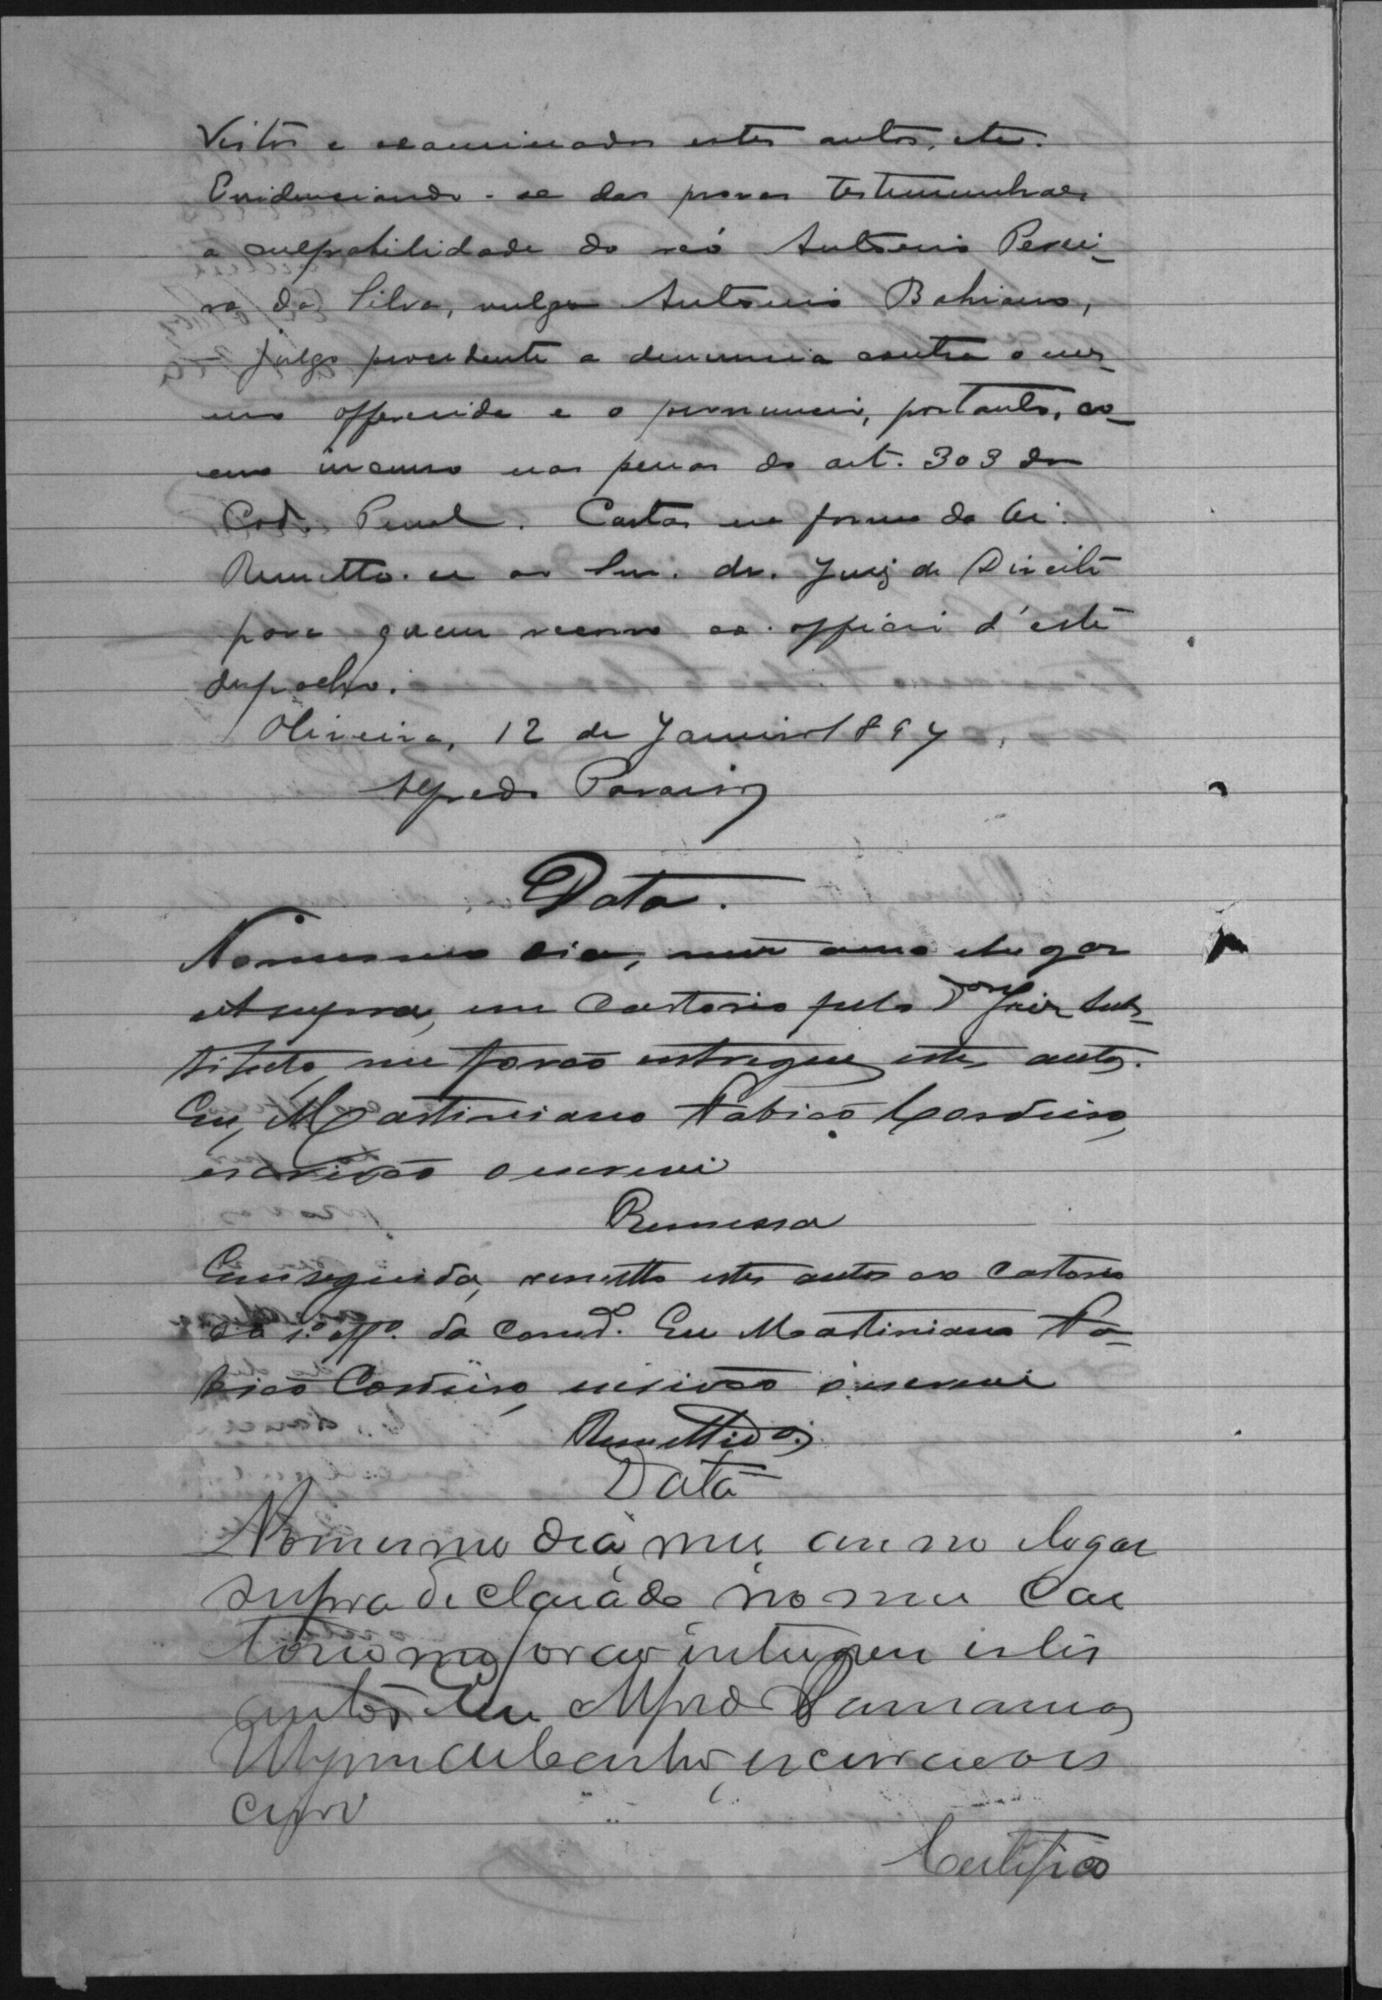 Vistos e examinados estes autos, etc.
Evidenciando-se das provas testemunhaes
a culpabilidade do réo Antonio Perei-
ra da Silva, vulgo Antonio Bahiano,
julgo procedente a denuncia contra o mes-
mo offerecida e o pronuncio, portanto, co-
mo incurso nas penas do art. 303 do
Cod. Penal. Custas na forma da lei.
Remetta-se ao Snr. dr. Juiz de Direito
para quem recorro ex-officio d'este
despacho.
Oliveira, 12 de Janeiro 1897.
Alfredo Paraiso
Data.
No mesmo dia, mez anno e lugar
supra, em cartorio pelo Dor Juiz Subs-
tituto me forão entregues estes autos.
Eu, Martiniano Fabião Cordeiro,
escrivão o escrevi
Remessa
Em seguida, remetto estes autos ao cartorio
do 1º Offº. da Comca. Eu Martiniano Fa-
bião Cordeiro, escrivão o escrevi
Remettidos
Data
No mesmo dia mez anno e logar
supra declarado no meu Car
torio me forão entregues estes
autos Eu Alfredo
escrivão o es
crevi
Certifico